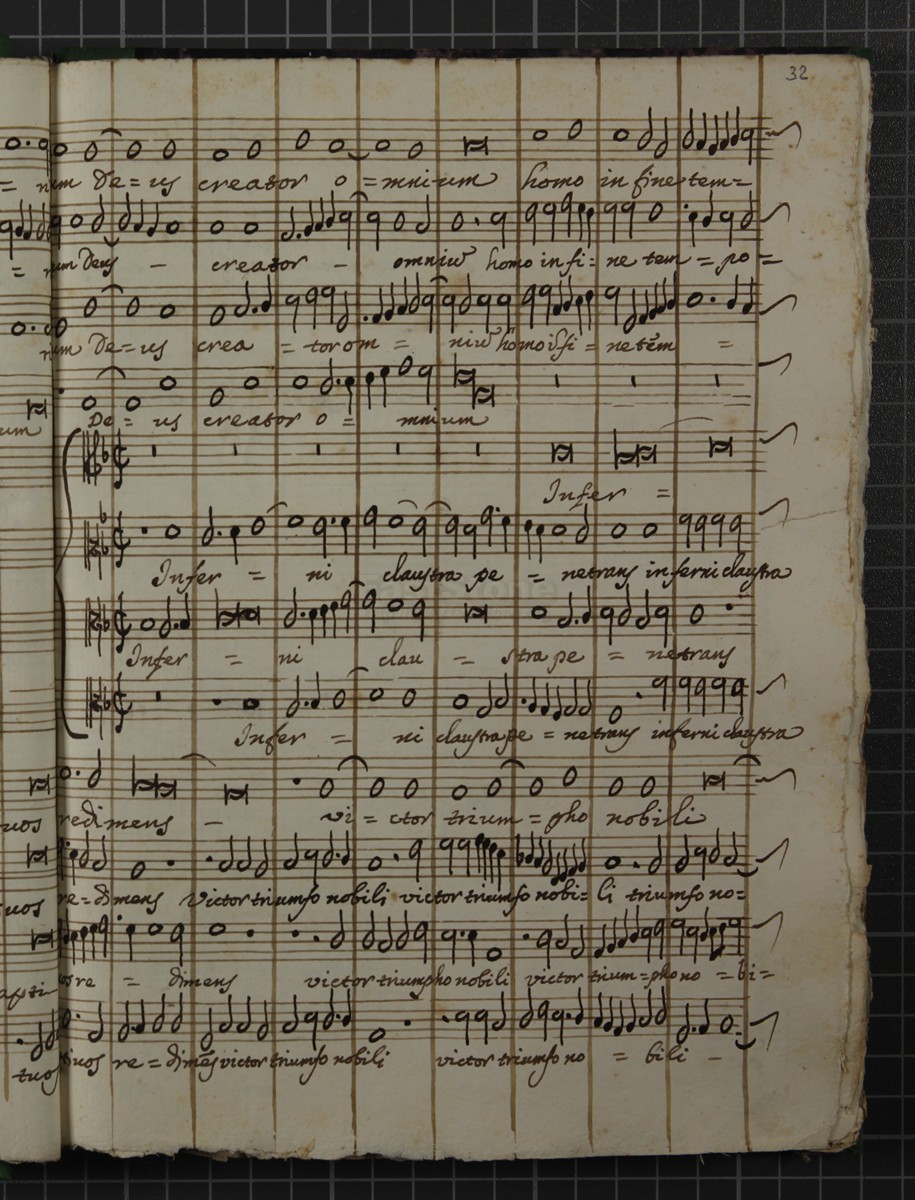 32
= num De=us creator o=mnium homo in fine tem=
= num Deus – creator – omniũ homo in fi= ne tem = po =
num De=us crea = tor om = niũ homo ĩ fi = ne tẽm =
um De = us creator o = mnium
Infer =
Infer = ni claustra pe = netrans inferni claustra
Infer = ni clau = stra pe = netrans
Infer = ni claustra pe = netrans inferni claustra
tuos redimens – vi = ctor trium = pho nobili
tuos re=dimens victor triumfo nobili victor triumfo nobi= li triumfo no=
re = dimens victor triumpho nobili victor trium=pho no = bi=
tuos tuos re = dimẽs victor triumfo nobili victor triumfo no = bili –